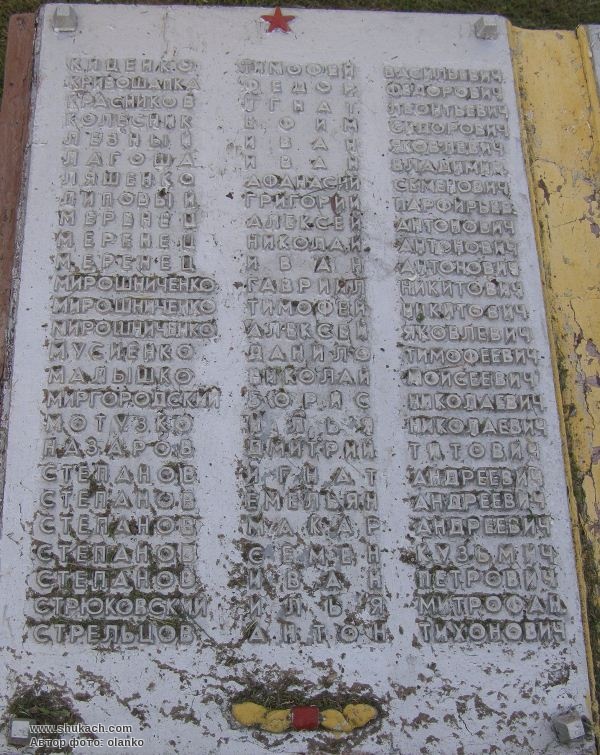 КИЦЕНКО ТИМОФЕЙ ВАСИЛЬЕВИЧ
КРИВОШАПКА ФЕДОР ФЕДОРОВИЧ
КРАСНИКОВ ИГНАТ ЛЕОНТЬЕВИЧ
КОЛЕСНИК ЕФИМ СИДОРОВИЧ
ЛЕЗНЫЙ ИВАН ЯКОВЛЕВИЧ
ЛАГОША ИВАН ВЛАДИМИР
ЛЯШЕНКО АФАНАСИЙ СЕМЕНОВИЧ
ЛИПОВЫЙ ГРИГОРИЙ ПАРФИРЬЕВ
МЕРЕНЕЦ АЛЕКСЕЙ АНТОНОВИЧ
МЕРЕНЕЦ НИКОЛАЙ АНТОНОВИЧ
МЕРЕНЕЦ ИВАН АНТОНОВИЧ
МИРОШНИЧЕНКО ГАВРИИЛ НИКИТОВИЧ
МИРОШНИЧЕНКО ТИМОФЕЙ НИКИТОВИЧ
МИРОШНИЧЕНКО АЛЕКСЕЙ ЯКОВЛЕВИЧ
МУСИЕНКО ДАНИЛО ТИМОФЕЕВИЧ
МАЛЫШКО НИКОЛАЙ МОИСЕЕВИЧ
МИРГОРОДСКИЙ БОРИС НИКОЛАЕВИЧ
МОТУЗКО ИЛЬЯ НИКОЛАЕВИЧ
НАЗАРОВ ДМИТРИЙ ТИТОВИЧ
СТЕПАНОВ ИГНАТ АНДРЕЕВИЧ
СТЕПАНОВ ЕМЕЛЬЯН АНДРЕЕВИЧ
СТЕПАНОВ МАКАР АНДРЕЕВИЧ
СТЕПАНОВ СЕМЕН КУЗЬМИЧ
СТЕПАНОВ ИВАН ПЕТРОВИЧ
СТРЮКОВСКИЙ ИЛЬЯ МИТРОФАН
СТРЕЛЬЦОВ АНТОН ТИХОНОВИЧ
www.shukach.com
Автор фото: olanko